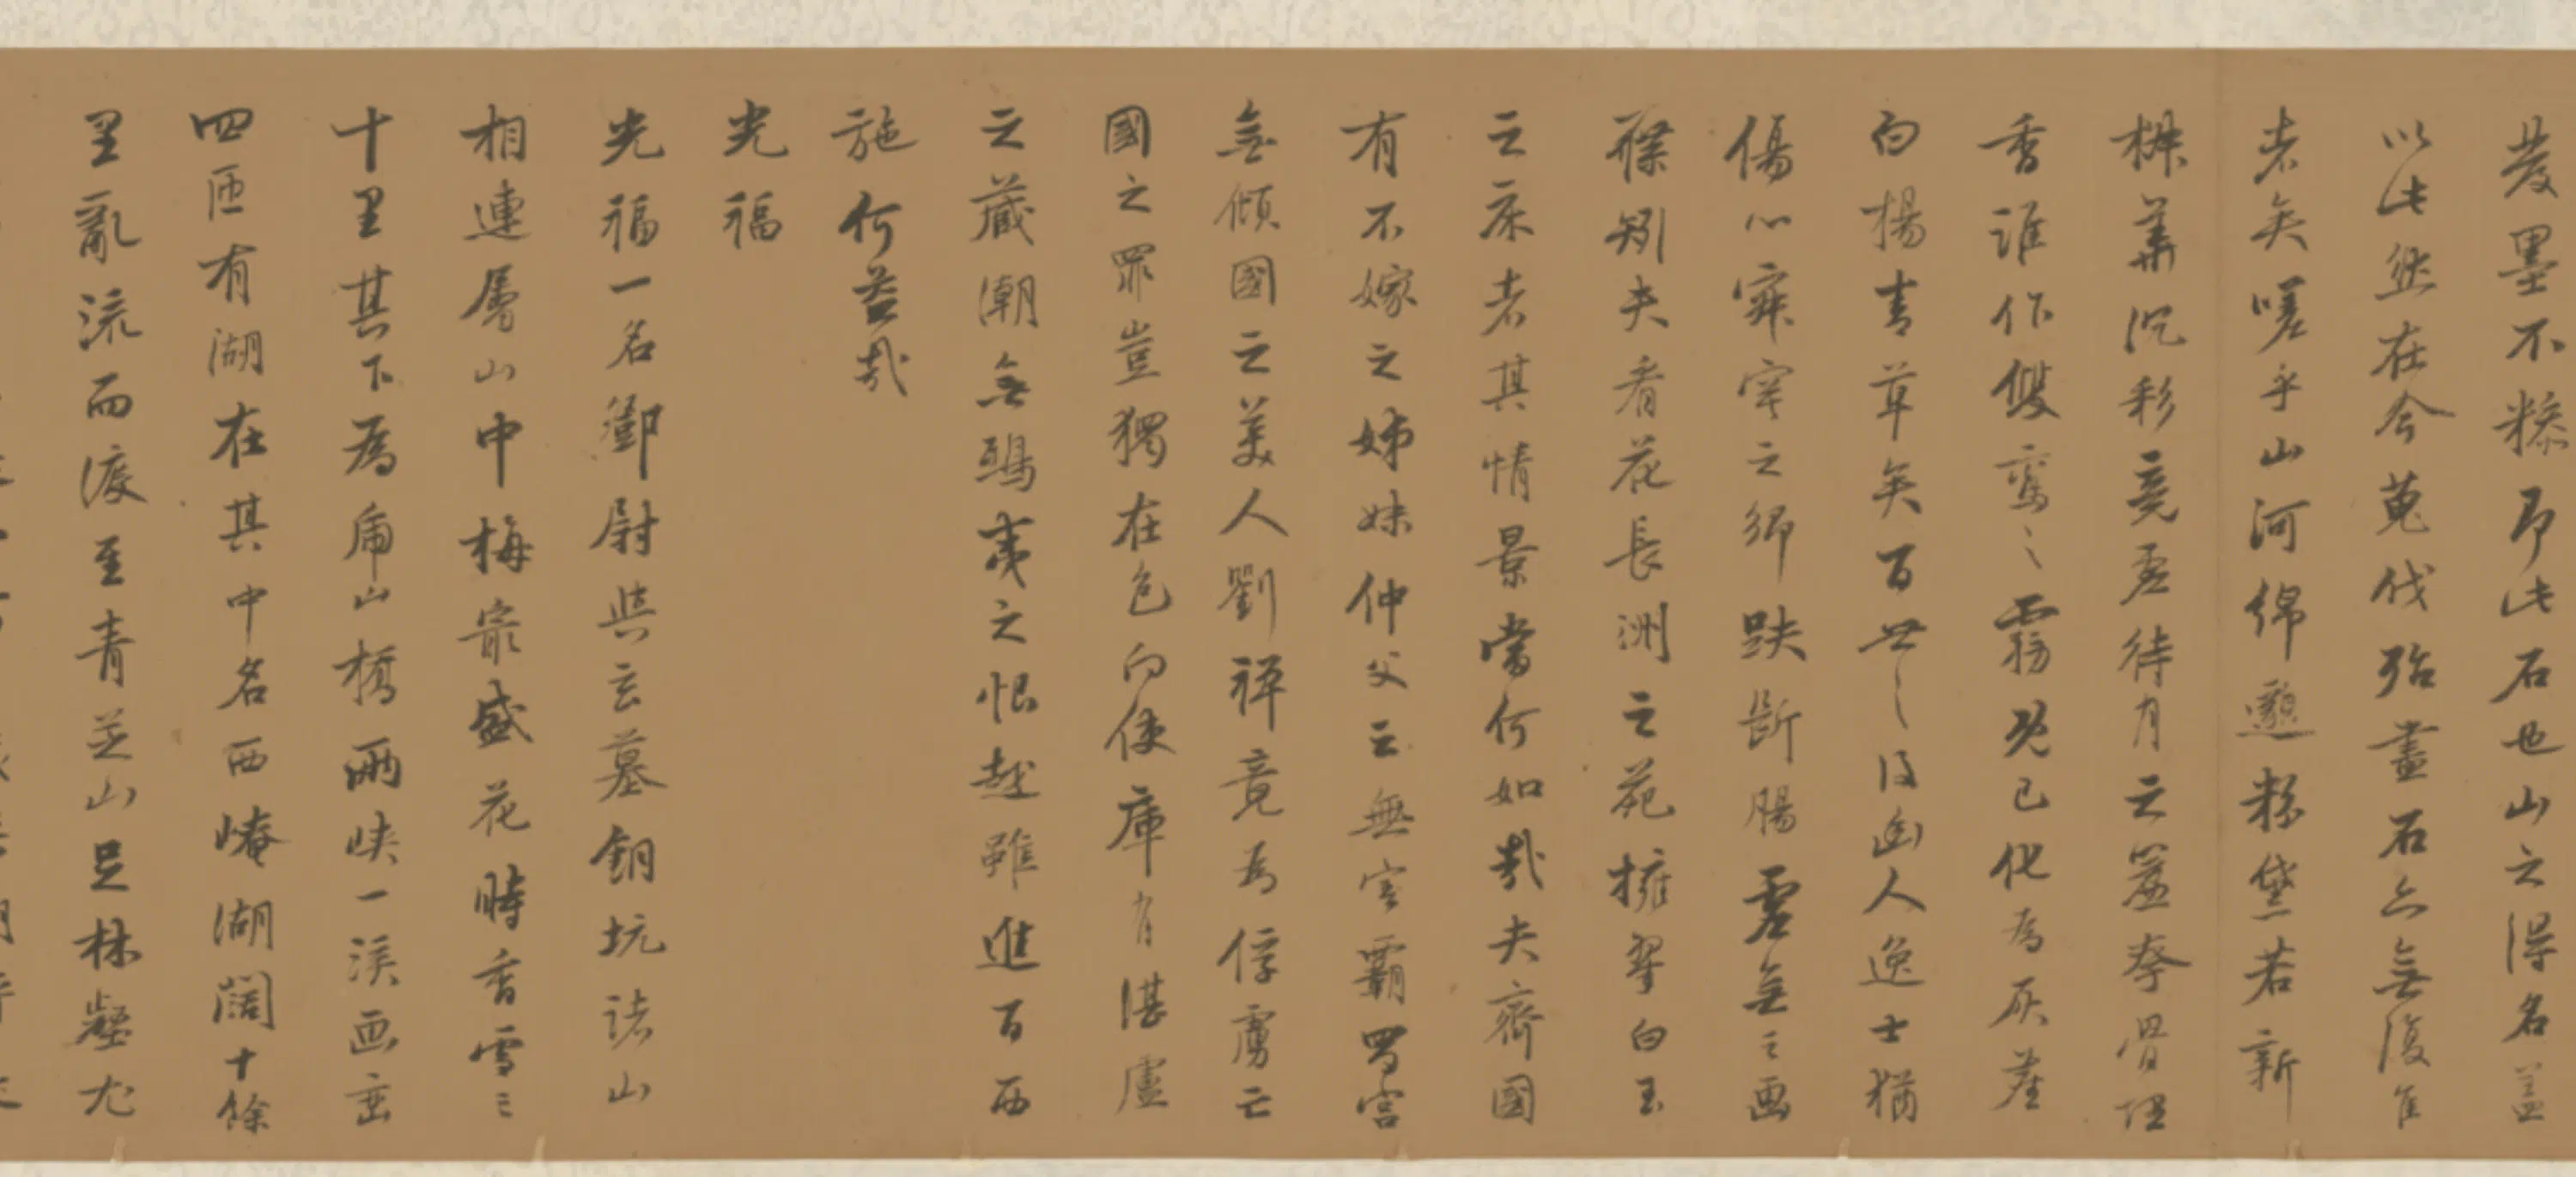 發墨不糝即此石也山之得名蓋
以此然在今蒐伐殆盡石亦無復佳
者矣嗟乎山河綿邈粉黛若新
椒華沉彩竟虛待月之簾夸骨埋
香誰作雙鸞之霧既已化為灰塵
白楊青草矣百世之後幽人逸士猶
傷心寂寞之鄉趺斷腸虛無之畫
矧夫看花長洲之苑擁翠白玉
之床者其情景當何如哉夫齊國
有不嫁之姊妹仲父云無害霸蜀宮
無傾國之美人劉禪竟為俘虜亡
國之罪豈獨在色向使庫有湛盧
之藏潮無鴟夷之恨越雖進百西
施何益哉
光福
光福一名鄧尉與玄墓銅坑諸山
相連屬山中梅最盛花時香雪三
十里其下為虎山橋兩峽一溪画峦
四匝有湖在其中名西崦湖闊十餘
里亂流而渡至青芝山足林壑尤